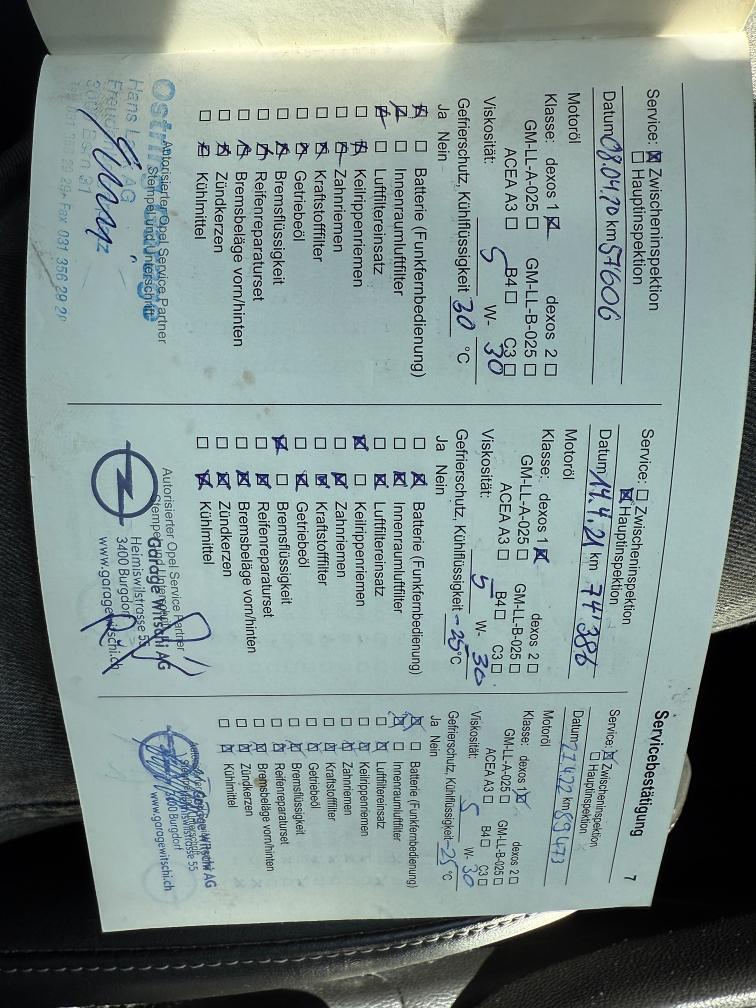 Servicebestätigung 7
Service: ☒ Zwischeninspektion
☐ Hauptinspektion
Datum 08.04.20 km 57606
Motoröl
Klasse: dexos 1 ☒ dexos 2 ☐
GM-LL-A-025 ☐ GM-LL-B-025 ☐
ACEA A3 ☐ B4 ☐ C3 ☐
Viskosität: 5 W- 30
Gefrierschutz, Kühlflüssigkeit 30 °C
Ja Nein
☒ ☐ Batterie (Funkfernbedienung)
☒ ☐ Innenraumluftfilter
☒ ☐ Luftfiltereinsatz
☐ ☒ Keilrippenriemen
☐ ☒ Zahnriemen
☐ ☒ Kraftstofffilter
☐ ☒ Getriebeöl
☐ ☒ Bremsflüssigkeit
☐ ☒ Reifenreparaturset
☐ ☒ Bremsbeläge vorn/hinten
☐ ☒ Zündkerzen
☐ ☒ Kühlmittel
Autorisierter Opel Service Partner
Stempel und Unterschrift
Hans AG
Fax 031 356 29 20
Service: ☐ Zwischeninspektion
☒ Hauptinspektion
Datum 14.4.21 km 74'386
Motoröl
Klasse: dexos 1 ☒ dexos 2 ☐
GM-LL-A-025 ☐ GM-LL-B-025 ☐
ACEA A3 ☐ B4 ☐ C3 ☐
Viskosität: 5 W- 30
Gefrierschutz, Kühlflüssigkeit -25 °C
Ja Nein
☐ ☒ Batterie (Funkfernbedienung)
☐ ☒ Innenraumluftfilter
☐ ☒ Luftfiltereinsatz
☒ ☐ Keilrippenriemen
☐ ☒ Zahnriemen
☐ ☒ Kraftstofffilter
☐ ☒ Getriebeöl
☒ ☐ Bremsflüssigkeit
☐ ☒ Reifenreparaturset
☐ ☒ Bremsbeläge vorn/hinten
☐ ☒ Zündkerzen
☐ ☒ Kühlmittel
Autorisierter Opel Service Partner
Stempel und
Garage Witschi AG
Heimiswilstrasse 55
3400 Burgdorf
www.garagewitschi.ch
Service: ☒ Zwischeninspektion
☐ Hauptinspektion
Datum km 89473
Motoröl
Klasse: dexos 1 ☒ dexos 2 ☐
GM-LL-A-025 ☐ GM-LL-B-025 ☐
ACEA A3 ☐ B4 ☐ C3 ☐
Viskosität: 5 W- 30
Gefrierschutz, Kühlflüssigkeit -25 °C
Ja Nein
☒ ☐ Batterie (Funkfernbedienung)
☒ ☐ Innenraumluftfilter
☐ ☒ Luftfiltereinsatz
☐ ☒ Keilrippenriemen
☐ ☒ Zahnriemen
☐ ☒ Kraftstofffilter
☐ ☒ Getriebeöl
☐ ☒ Bremsflüssigkeit
☐ ☒ Reifenreparaturset
☐ ☒ Bremsbeläge vorn/hinten
☐ ☒ Zündkerzen
☐ ☒ Kühlmittel
Garage Witschi AG
Heimiswilstrasse 55
3400 Burgdorf
www.garagewitschi.ch